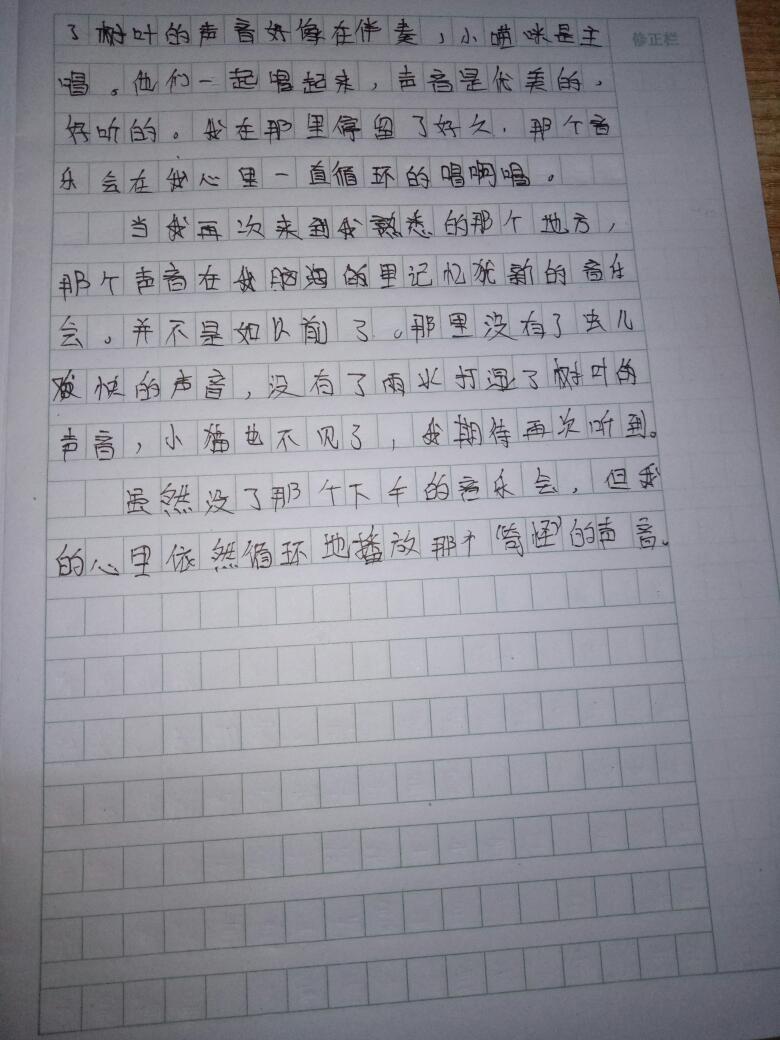 了树叶的声音好像在伴奏，小喵咪是主
修正栏
唱。他们一起唱起来，声音是优美的，
好听的。我在那里停留了好久，那个音
乐会在我心里一直循环的唱啊唱。
当我再次来到我熟悉的那个地方，
那个声音在我脑海的里记忆犹新的音乐
会。并不是如以前了。那里没有了虫儿
欢快的声音，没有了雨水打湿了树叶的
声音，小猫也不见了，我期待再次听到。
虽然没了那个下午的音乐会，但我
的心里依然循环地播放那个“奇怪”的声音。